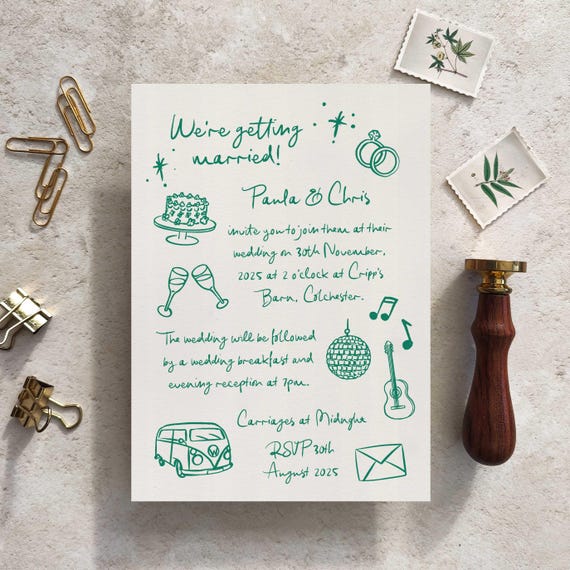 We're getting
married!
Paula & Chris
invite you to join them at their
wedding on 30th November,
2025 at 2 o'clock at Cripp's
Barn, Colchester.
The wedding will be followed
by a wedding breakfast and
evening reception at 7pm.
Carriages at Midnight
RSVP 30th
August 2025
W